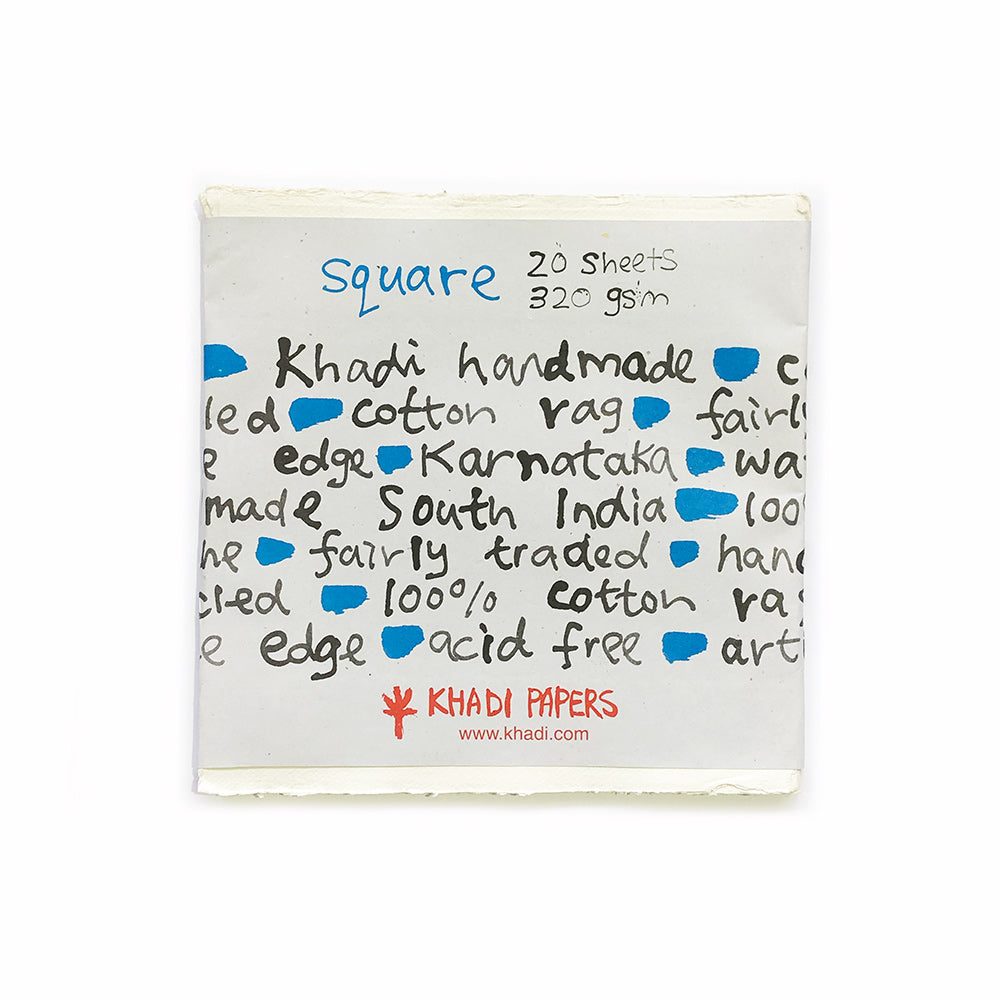 square 20 sheets
320 gsm
Khadi handmade c
led cotton rag fairly
e edge Karnataka wa
made South India 100
ne fairly traded han
cled 100% cotton rag
e edge acid free arti
KHADI PAPERS
www.khadi.com